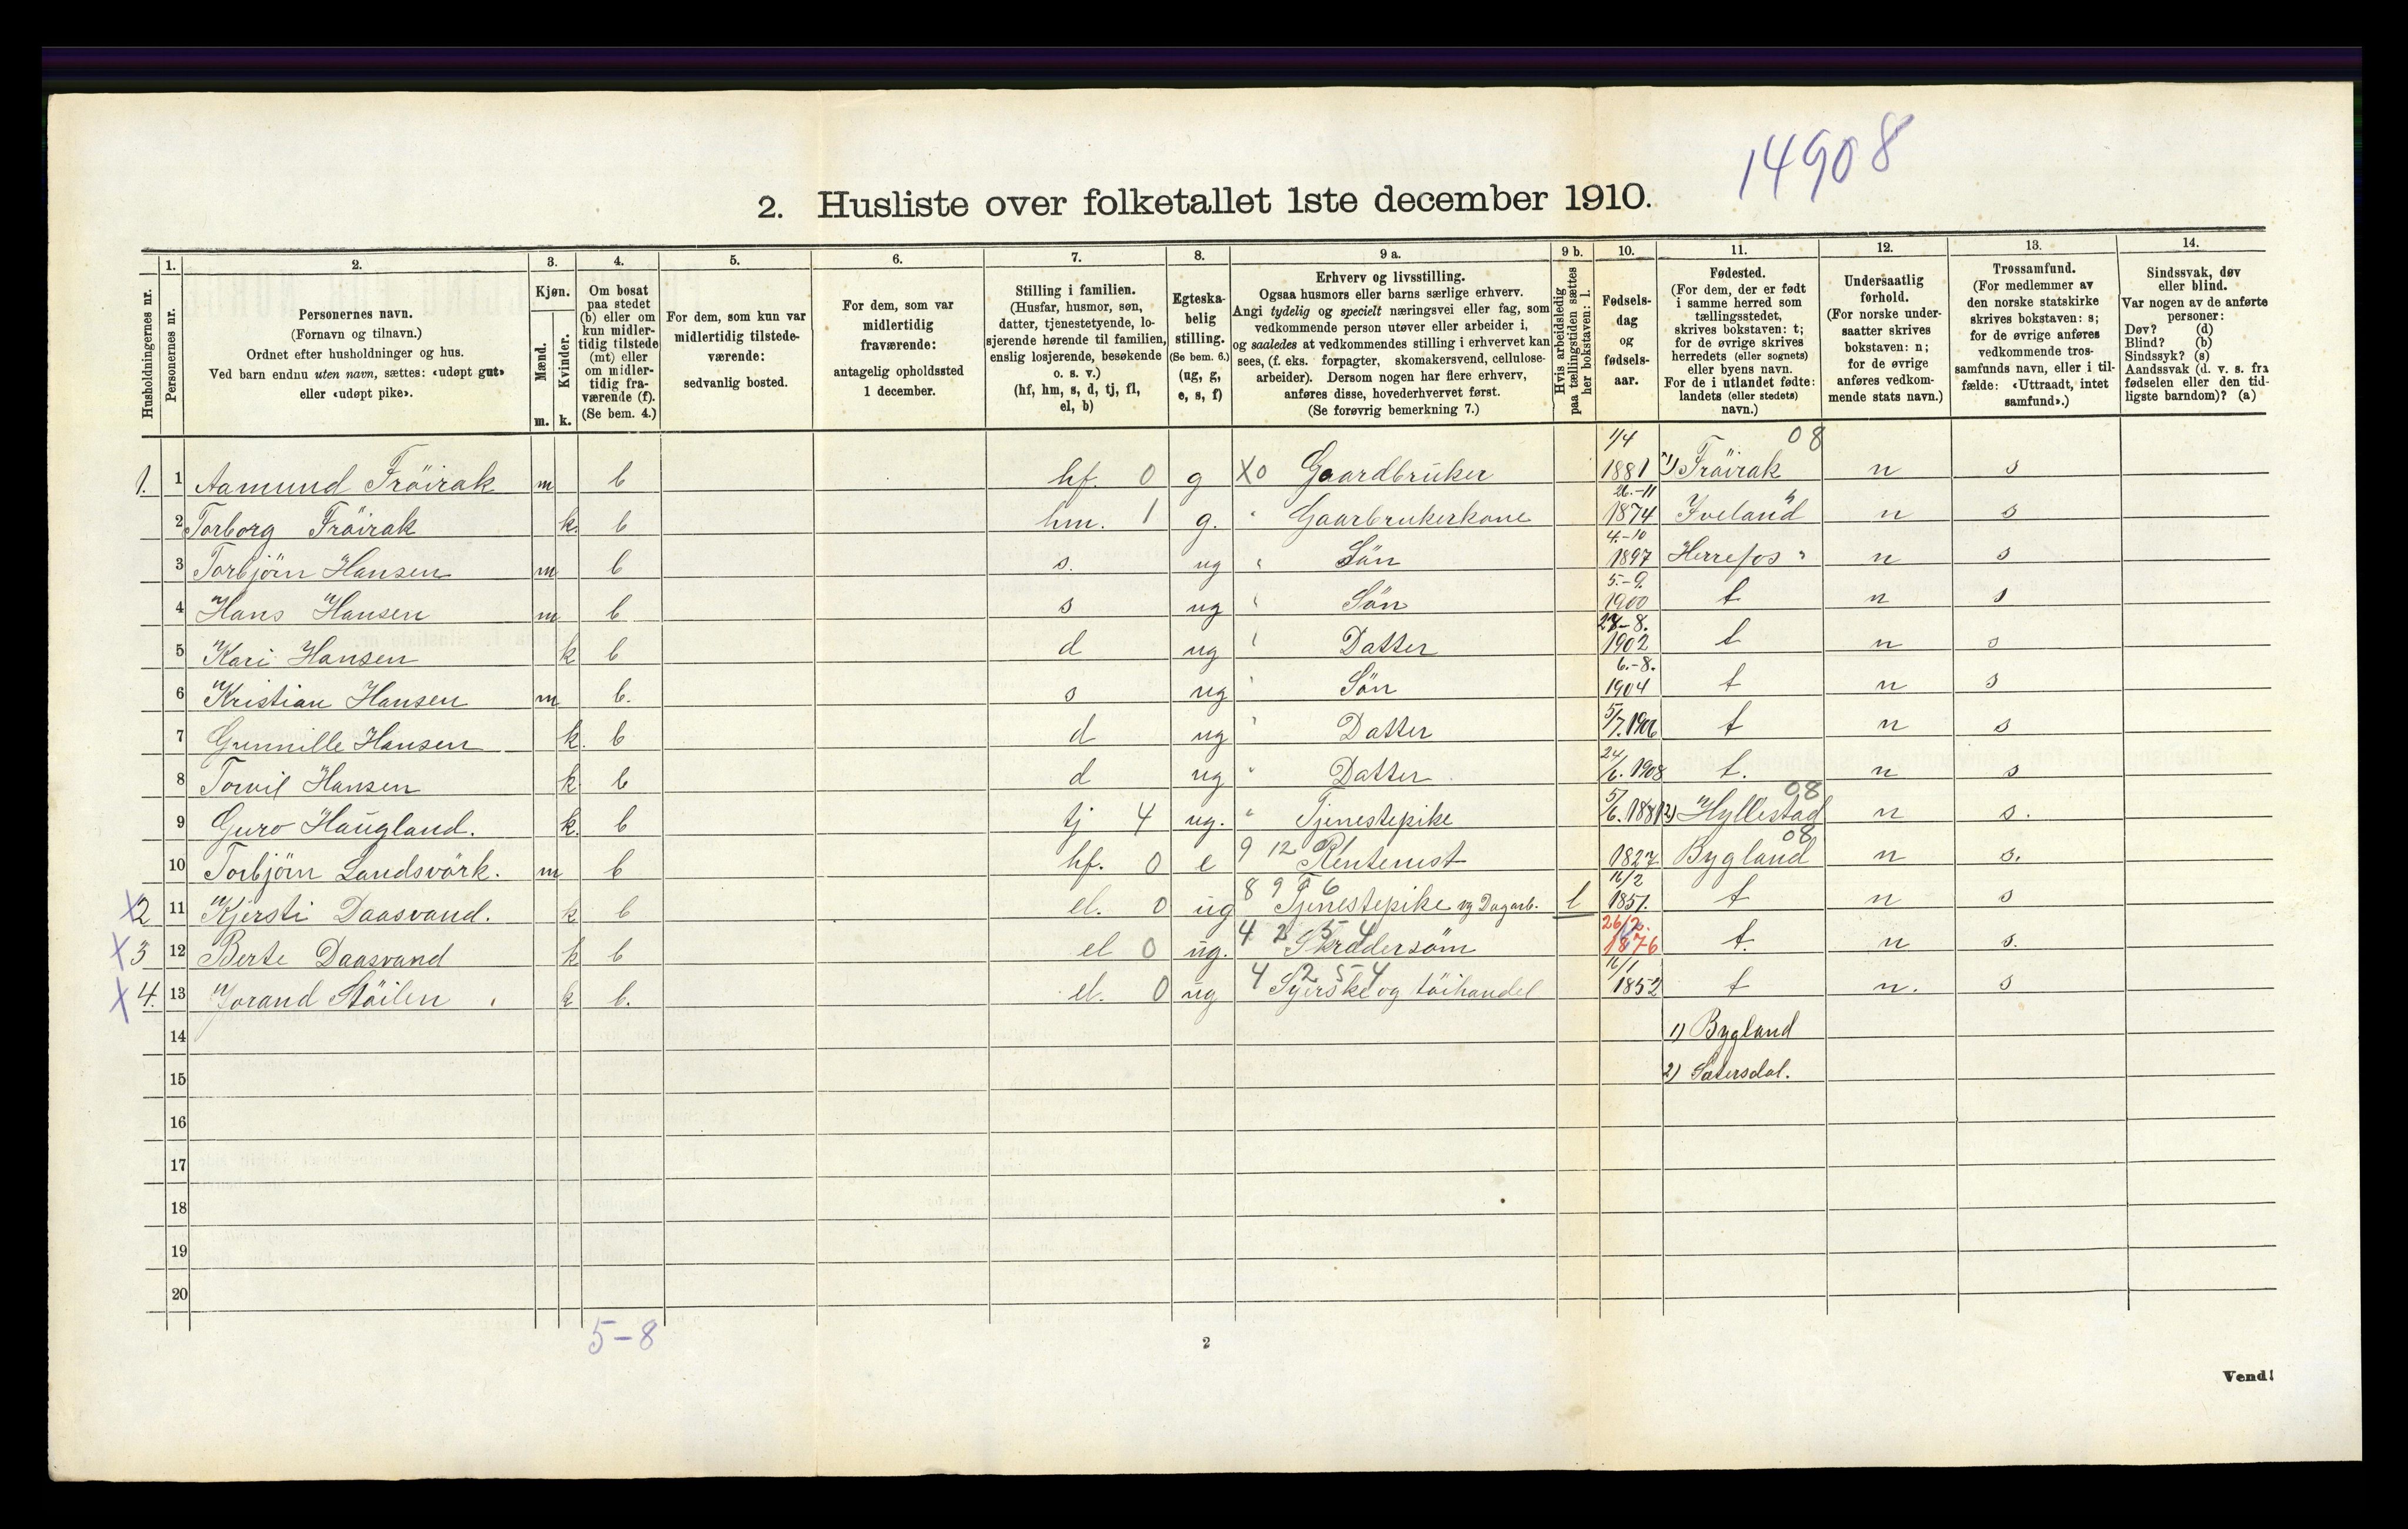 14908
2. Husliste over folketallet 1ste december 1910.
Husholdningernes nr.
1. Personernes nr.
2. Personernes navn.
(Fornavn og tilnavn.)
Ordnet efter husholdninger og hus.
Ved barn endnu uten navn, sættes: «udøpt gut»
eller «udøpt pike».
3. Kjøn.
Mænd. m.
Kvinder. k.
4. Om bosat
paa stedet
(b) eller om
kun midler-
tidig tilstede
(mt) eller
om midler-
tidig fra-
værende (f).
(Se bem. 4.)
5. For dem, som kun var
midlertidig tilstede-
værende:
sedvanlig bosted.
6. For dem, som var
midlertidig
fraværende:
antagelig opholdssted
1 december.
7. Stilling i familien.
(Husfar, husmor, søn,
datter, tjenestetyende, lo-
sjerende hørende til familien,
enslig losjerende, besøkende
o. s. v.)
(hf, hm, s, d, tj, fl,
el, b)
8. Egteska-
belig
stilling.
(Se bem. 6.)
(ug, g,
e, s, f)
9 a. Erhverv og livsstilling.
Ogsaa husmors eller barns særlige erhverv.
Angi tydelig og specielt næringsvei eller fag, som
vedkommende person utøver eller arbeider i,
og saaledes at vedkommendes stilling i erhvervet kan
sees, (f. eks. forpagter, skomakersvend, cellulose-
arbeider). Dersom nogen har flere erhverv,
anføres disse, hovederhvervet først.
(Se forøvrig bemerkning 7.)
9 b. Hvis arbeidsledig
paa tællingstiden sættes
her bokstaven: l.
10. Fødsels-
dag
og
fødsels-
aar.
11. Fødested.
(For dem, der er født
i samme herred som
tællingsstedet,
skrives bokstaven: t;
for de øvrige skrives
herredets (eller sognets)
eller byens navn.
For de i utlandet fødte:
landets (eller stedets)
navn.)
12. Undersaatlig
forhold.
(For norske under-
saatter skrives
bokstaven: n;
for de øvrige
anføres vedkom-
mende stats navn.)
13. Trossamfund.
(For medlemmer av
den norske statskirke
skrives bokstaven: s;
for de øvrige anføres
vedkommende tros-
samfunds navn, eller i til-
fælde: «Uttraadt, intet
samfund».)
14. Sindssvak, døv
eller blind.
Var nogen av de anførte
personer:
Døv? (d)
Blind? (b)
Sindssyk? (s)
Aandssvak (d. v. s. fra
fødselen eller den tid-
ligste barndom)? (a)
1. 1 Aamund Fröirak m b hf. 0 g X0 Gaardbruker 1/4 1881 1) Fröirak 08 n s
2 Torborg Fröirak k. b hm. 1 g. " Gaarbrukerkone 26.-11 1874 Iveland n s
3 Torbjörn Hansen m b s. ug " Sön 4.-10 1897 Herrefos " n s
4 Hans Hansen m b s ug " Sön 5.-9. 1900 t n s
5 Kari Hansen k b d ug " Datter 27-8. 1902 t n s
6 Kristian Hansen m b. s ug " Sön 6.-8. 1904 t n s
7 Gunnille Hansen k. b d ug " Datter 5/7.1906 t n s
8 Torvil Hansen k b d ug " Datter 24/6.1908 t. n s
9 Guro Haugland. k. b tj 4 ug. " Tjenestepike 5/6.1881 2) Hyllestad 08 n s.
10 Torbjörn Landsvörk. m b hf. 0 e 9 12 1 Rentenist 1827 Bygland 08 n s.
X2 11 Kjersti Daasvand. k b el. 0 ug 8 9 9 6 Tjenestepike og Dagarb. l 16/2 1851. t n s
X3 12 Berte Daasvand k b el 0 ug. 4 2 5 4 Skræddersöm 26/2. 1876 t. n s.
X4. 13 Jorand Stöilen k b. el. 0 ug 4 2 5-4 Syerske og töihandel 16/1 1852 t n. s
14 1) Bygland
15 2) Sætersdal.
16
17
18
19
20
5-8
2
Vend!